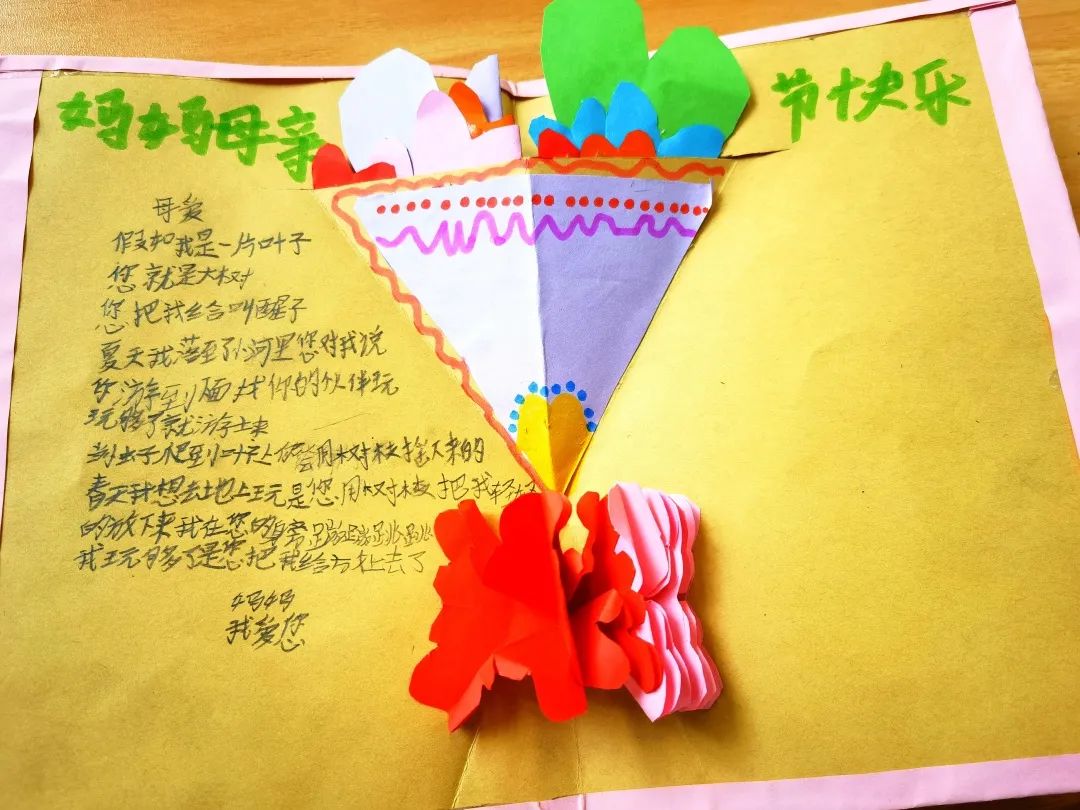 妈妈母亲 节快乐
母爱
假如我是一片叶子
您就是大树
您把我给叫醒了
夏天我落到小河里您对我说
你游到小面找你的伙伴玩
玩够了就游上来
当虫子爬到叶上您会用树枝拴下来的
春天我想去地上玩是您用树枝把我轻轻
的放下来我在您的身旁蹦蹦跳跳
我玩够了是您把我给方上去了
妈妈
我爱您